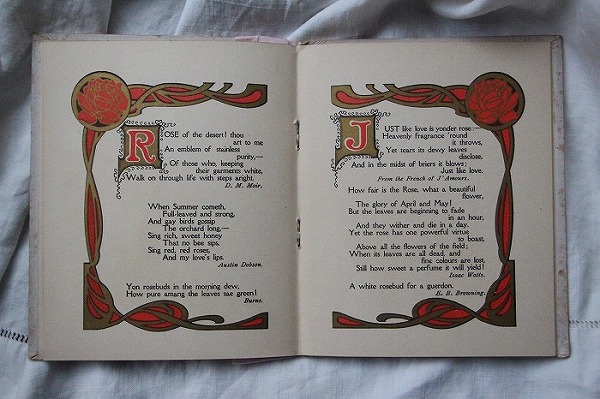 ROSE of the desert! thou
art to me
An emblem of stainless
purity,—
Of those who, keeping
their garments white,
Walk on through life with steps aright.
D. M. Moir.
When Summer cometh,
Full-leaved and strong,
And gay birds gossip
The orchard long,—
Sing rich, sweet honey
That no bee sips,
Sing red, red roses,
And my love's lips.
Austin Dobson.
Yon rosebuds in the morning dew,
How pure amang the leaves sae green!
Burns.
JUST like love is yonder rose:—
Heavenly fragrance 'round
it throws,
Yet tears its dewy leaves
disclose,
And in the midst of briers it blows;
Just like love.
From the French of J' Amours.
How fair is the Rose, what a beautiful
flower,
The glory of April and May!
But the leaves are beginning to fade
in an hour,
And they wither and die in a day.
Yet the rose has one powerful virtue
to boast,
Above all the flowers of the field;
When its leaves are all dead, and
fine colours are lost,
Still how sweet a perfume it will yield!
Isaac Watts.
A white rosebud for a guerdon.
E. B. Browning.